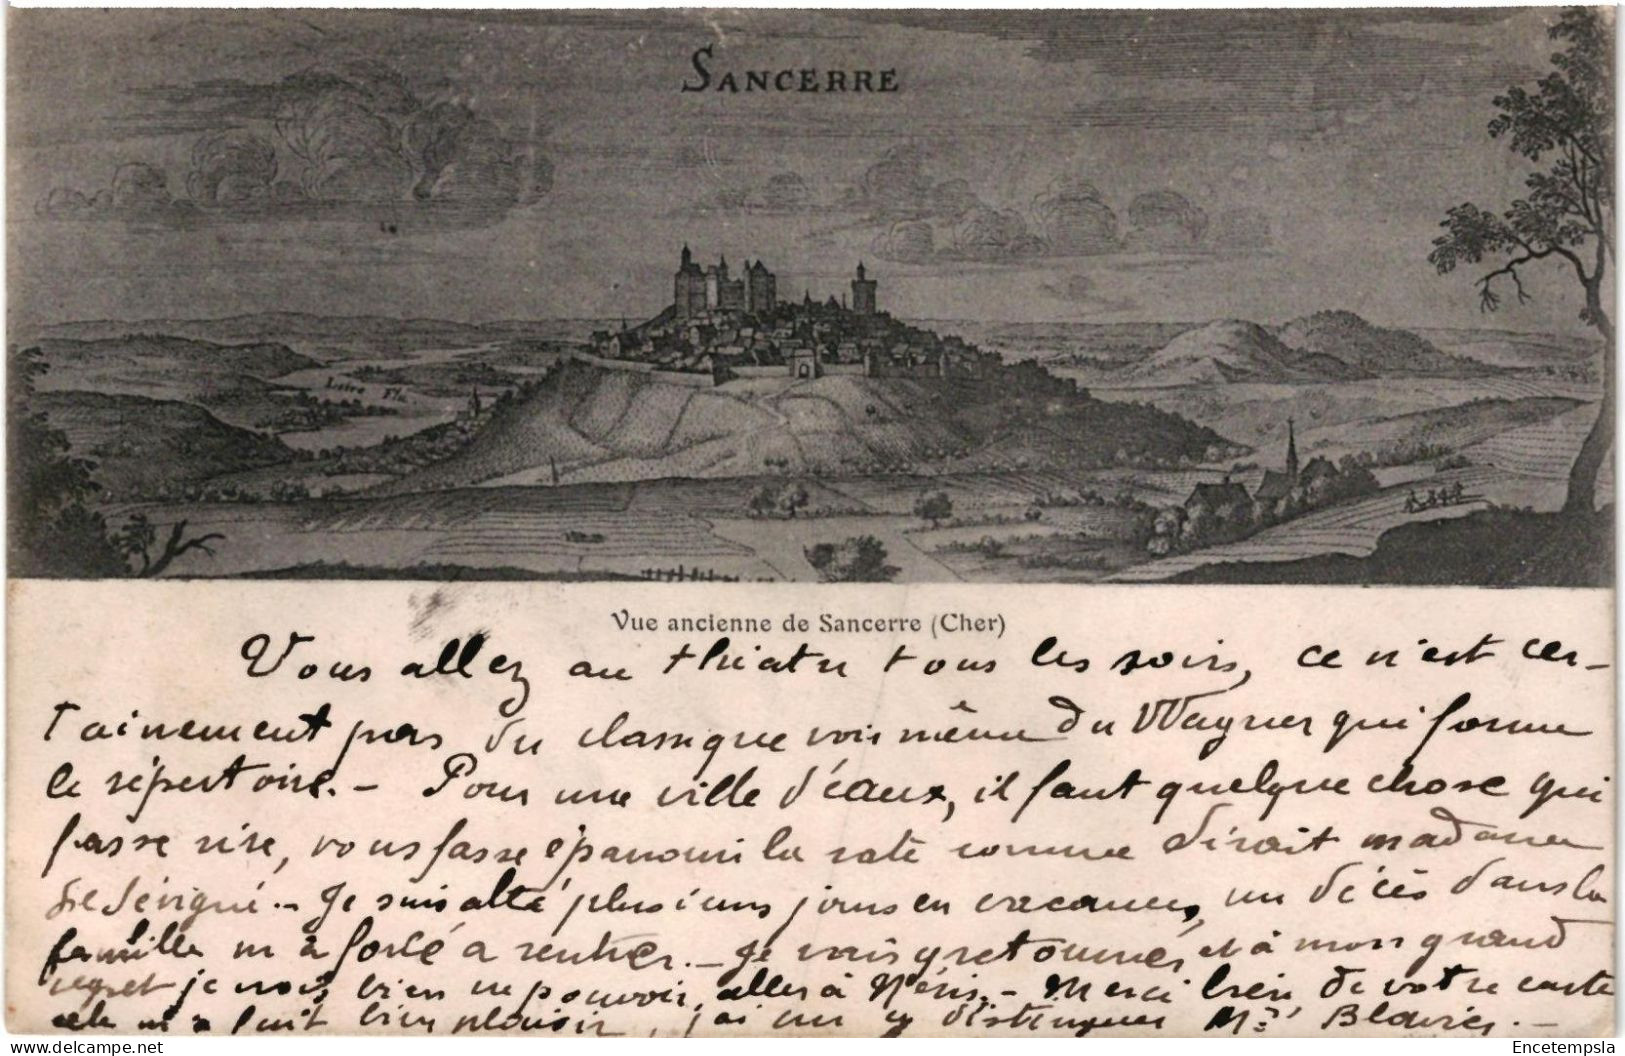 SANCERRE
Loire Flu.
Vue ancienne de Sancerre (Cher)
Vous allez au théatre tous les soirs, ce n'est cer-
tainement pas du classique voir même du Wagner qui forme
le répertoire. - Pour une ville d'eaux, il faut quelque chose qui
fasse rire, vous fasse épanouir la rate comme dirait madame
de Sévigné. - Je suis allé plusieurs jours en vacances, un décès dans la
famille m'a forcé a rentrer. - Je vais y retourner et à mon grand
regret je vais bien ne pouvoir aller à Néris. - Merci bien de votre carte
elle m'a fait bien plaisir, j'ai pu y distinguer Mr Blavier. -
Encetempsla